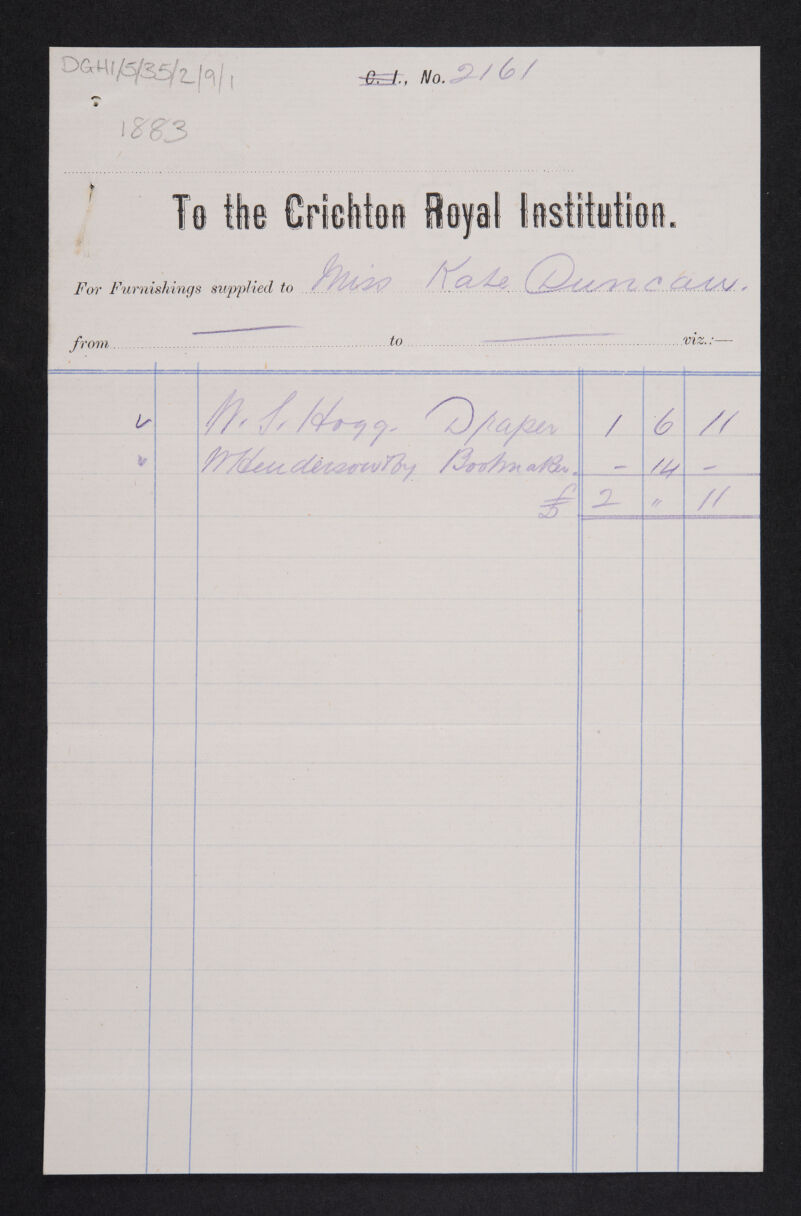 DGH1/5/35/2/9/1
C. I., No. 2161
1883
To the Crichton Royal Institution.
For Furnishings supplied to Miss Kate Duncan.
from — to — viz.:—
✓ W. S. Hogg. Draper 1 6 11
✓ W Henderson Bootmaker. - 14 -
£ 2 " 11